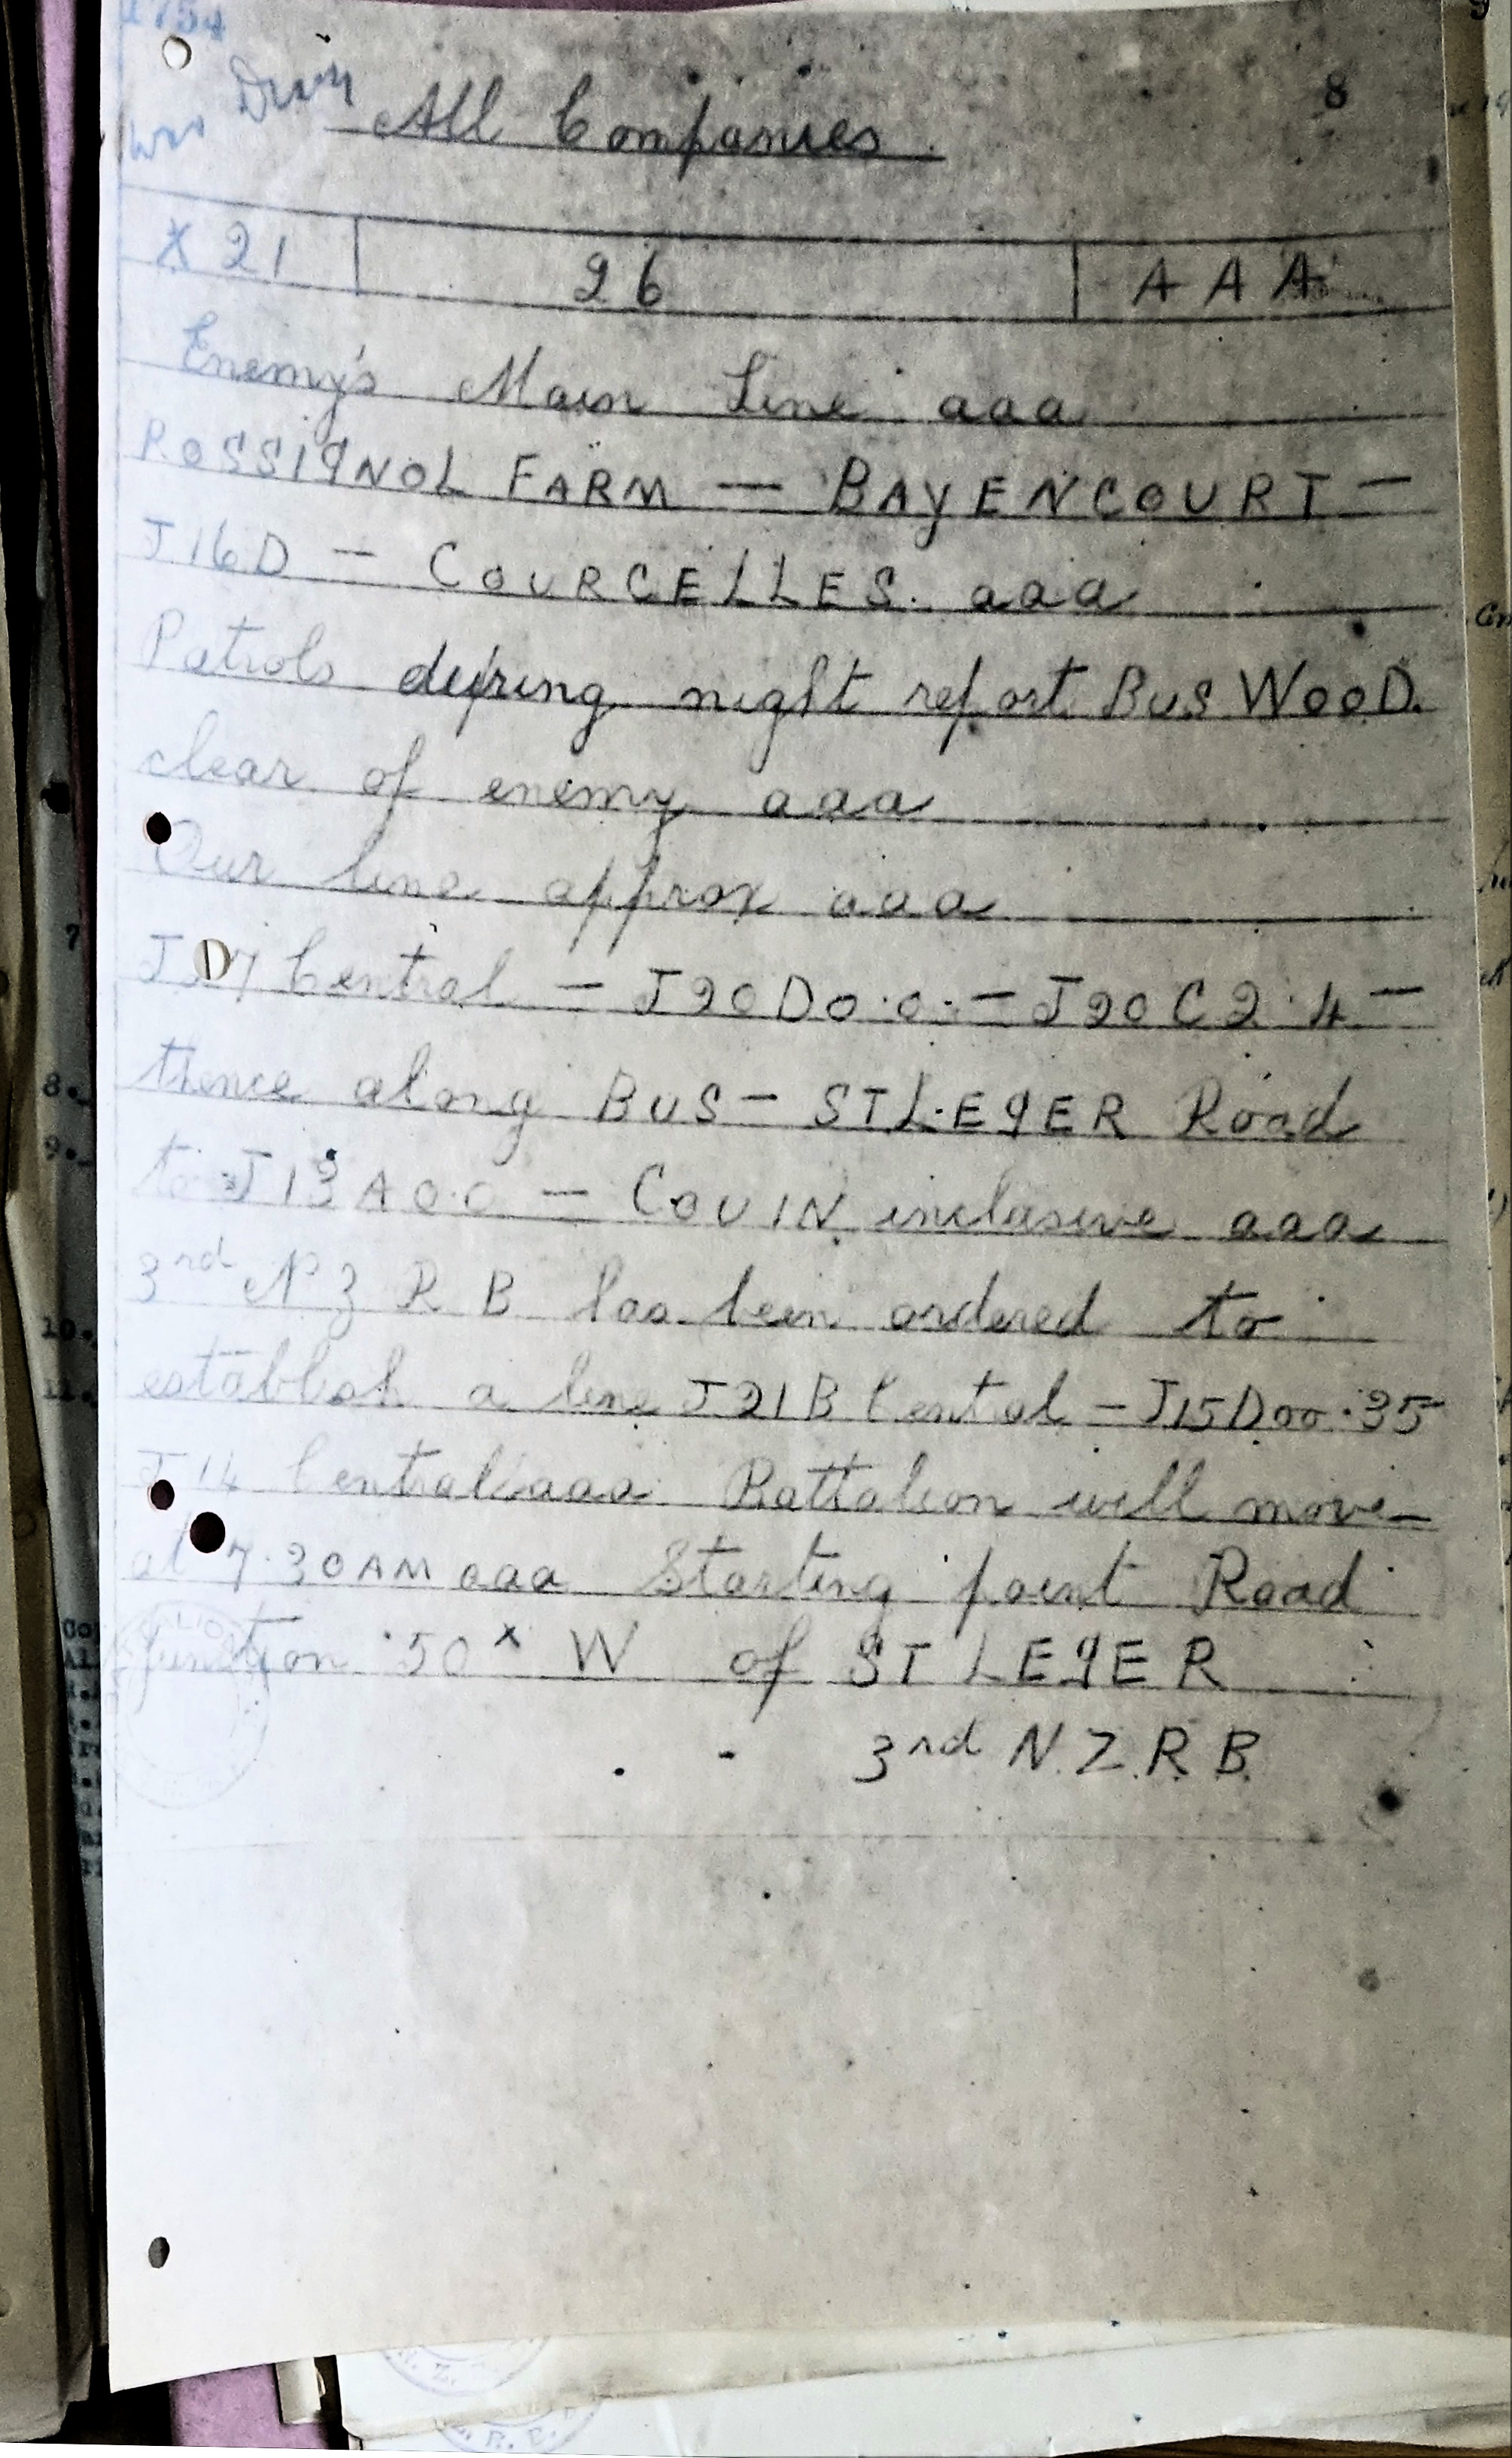 1754
8
War Diary
All Companies.
X 21 26 A A A
Enemy's Main Line aaa
ROSSIGNOL FARM — BAYENCOURT —
J16D — COURCELLES. aaa
Patrols during night report BUS WOOD.
clear of enemy aaa
Our line approx aaa
Central — J20D0.0. — J20C2.4 —
thence along BUS — ST LEGER Road
to A0.0 — COUIN inclusive aaa
3rd N Z R B has been ordered to
establish a line J21B Central — J15D00.35
J14 Central aaa Battalion will move
at 7.30AM aaa Starting point Road
junction 50x W of ST LEGER
3rd N.Z.R.B.
7
8.
9.
10.
11.